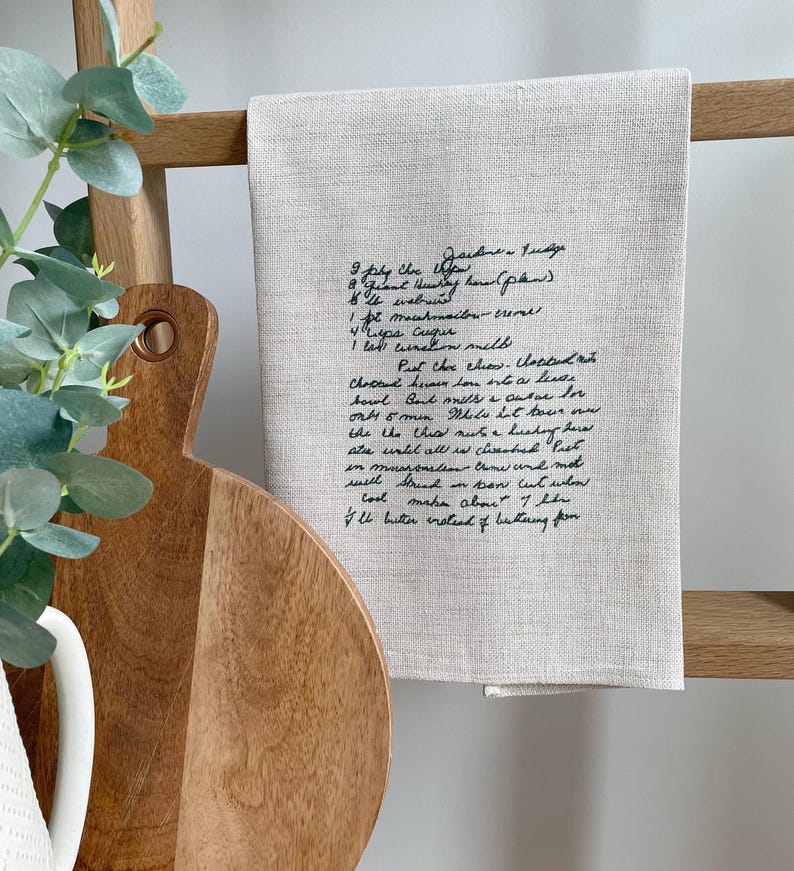 Fudge
3 pkg choc chips
8 giant Hershey bars (plain)
lb walnuts
1 pt marshmallow creme
4 cups sugar
1 milk
Put choc chips - chopped nuts
chopped hershey bars into a large
bowl. Boil milk & sugar for
only 5 min. While hot pour over
the choc chips nuts & hershey bars
stir until all is dissolved Put
in marshmallow creme and mix
well Spread in pan cut when
cool makes about 7 lbs
lb butter instead of buttering pan